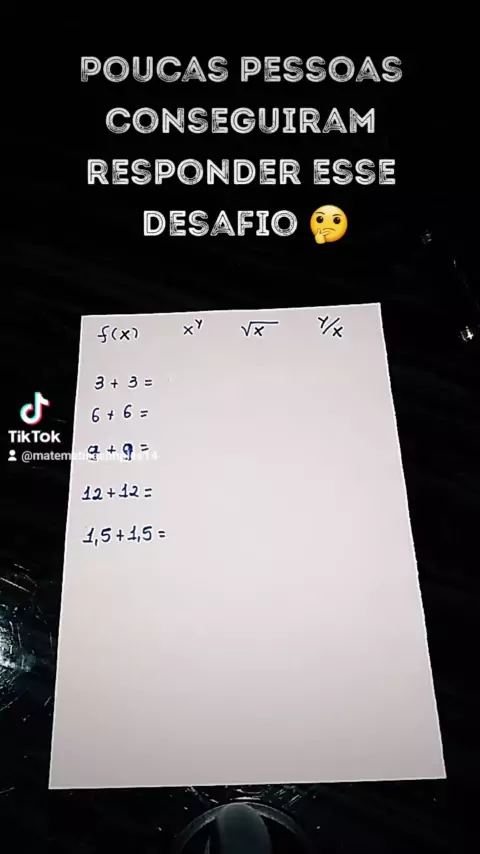 POUCAS PESSOAS
CONSEGUIRAM
RESPONDER ESSE
DESAFIO 🤔
f(x) x^y √x y/x
3 + 3 =
6 + 6 =
9 + 9 =
12 + 12 =
1,5 + 1,5 =
TikTok